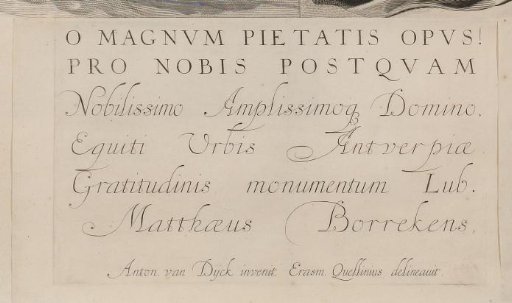 O MAGNVM PIETATIS OPVS!
PRO NOBIS POSTQVAM
Nobilissimo Amplissimoq Domino.
Equiti Urbis Antverpiæ
Gratitudinis monumentum Lub.
Matthæus Borrekens.
Anton van Dÿck invenit. Erasm Quellinius delineauit.